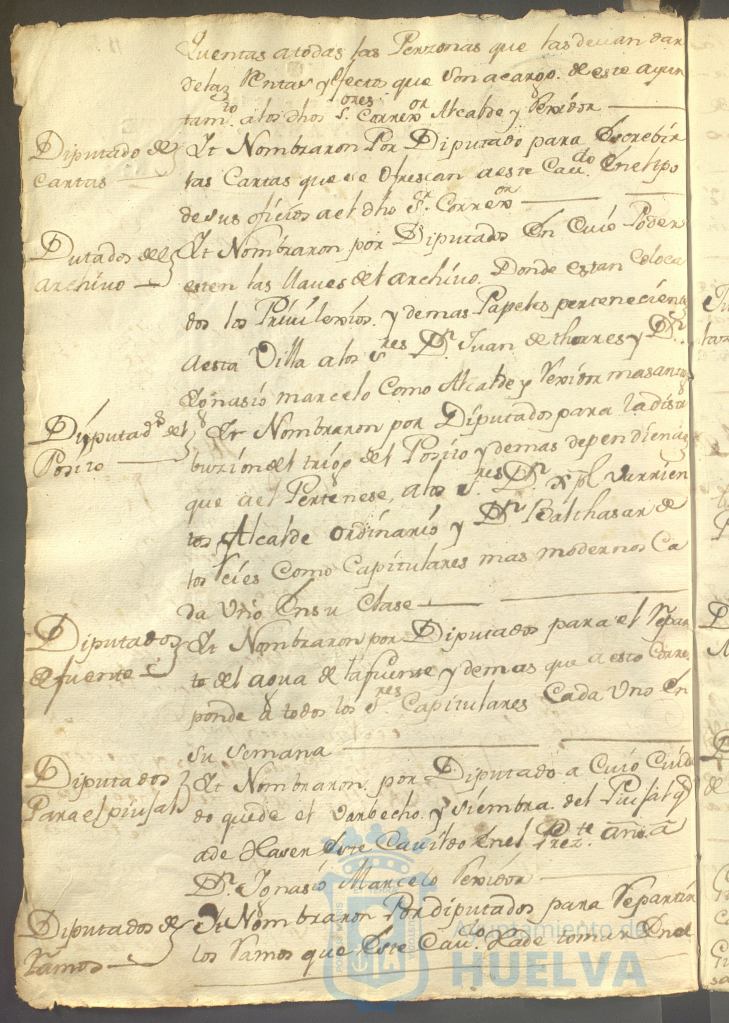 Quentas a todas las Perzonas que las devan dar
de laz Rentas y efectos que son a cargo de este ayun
tam.to a los dhos S.ores Corre.or Alcalde y Rexidor
Diputado de
cartas
It Nombraron Por Diputado para Escrebir
las Cartas que se ofrescan a este Cav.do En el tpo
de sus oficios a el dho S.r Corre.or
Dutados del
archivo
It Nombraron por Diputados En Cuio Poder
esten las llaves del archivo, Donde estan Coloca
dos los Privilexios y demas Papeles pertenecien
a esta Villa a los S.res D.n Juan de thorres y D.n
Ignasio marcelo Como Alcalde y Rexidor mas antig
Diputad.s del
Posito
It Nombraron por Diputados para la distri
buzion del trigo del Posito y demas dependiencias
que a el Pertenese, a los S.res D.n
tos Alcalde ordinario y D.n Balthasar de
los Como Capitulares mas modernos Ca
da Uno En su Clase
Diputados
de fuente
It Nombraron por Diputados para el Repar
to del agua de la fuente y demas que a esto Corre
ponde a todos los S.res Capitulares Cada Uno En
su semana
Diputados
Para el piujal
It Nombraron por Diputado a Cuio Cuida
do quede el varbecho y siembra del Piujal q
a de Haser Este Cavildo En el Prez.te año a
D.n Ignasio Marcelo Rexidor
Diputados de
Ramos
It Nombraron Por diputados para Repartir
los Ramos que Este Cav.do Ha de tomar En el
Ayuntamiento de
HUELVA